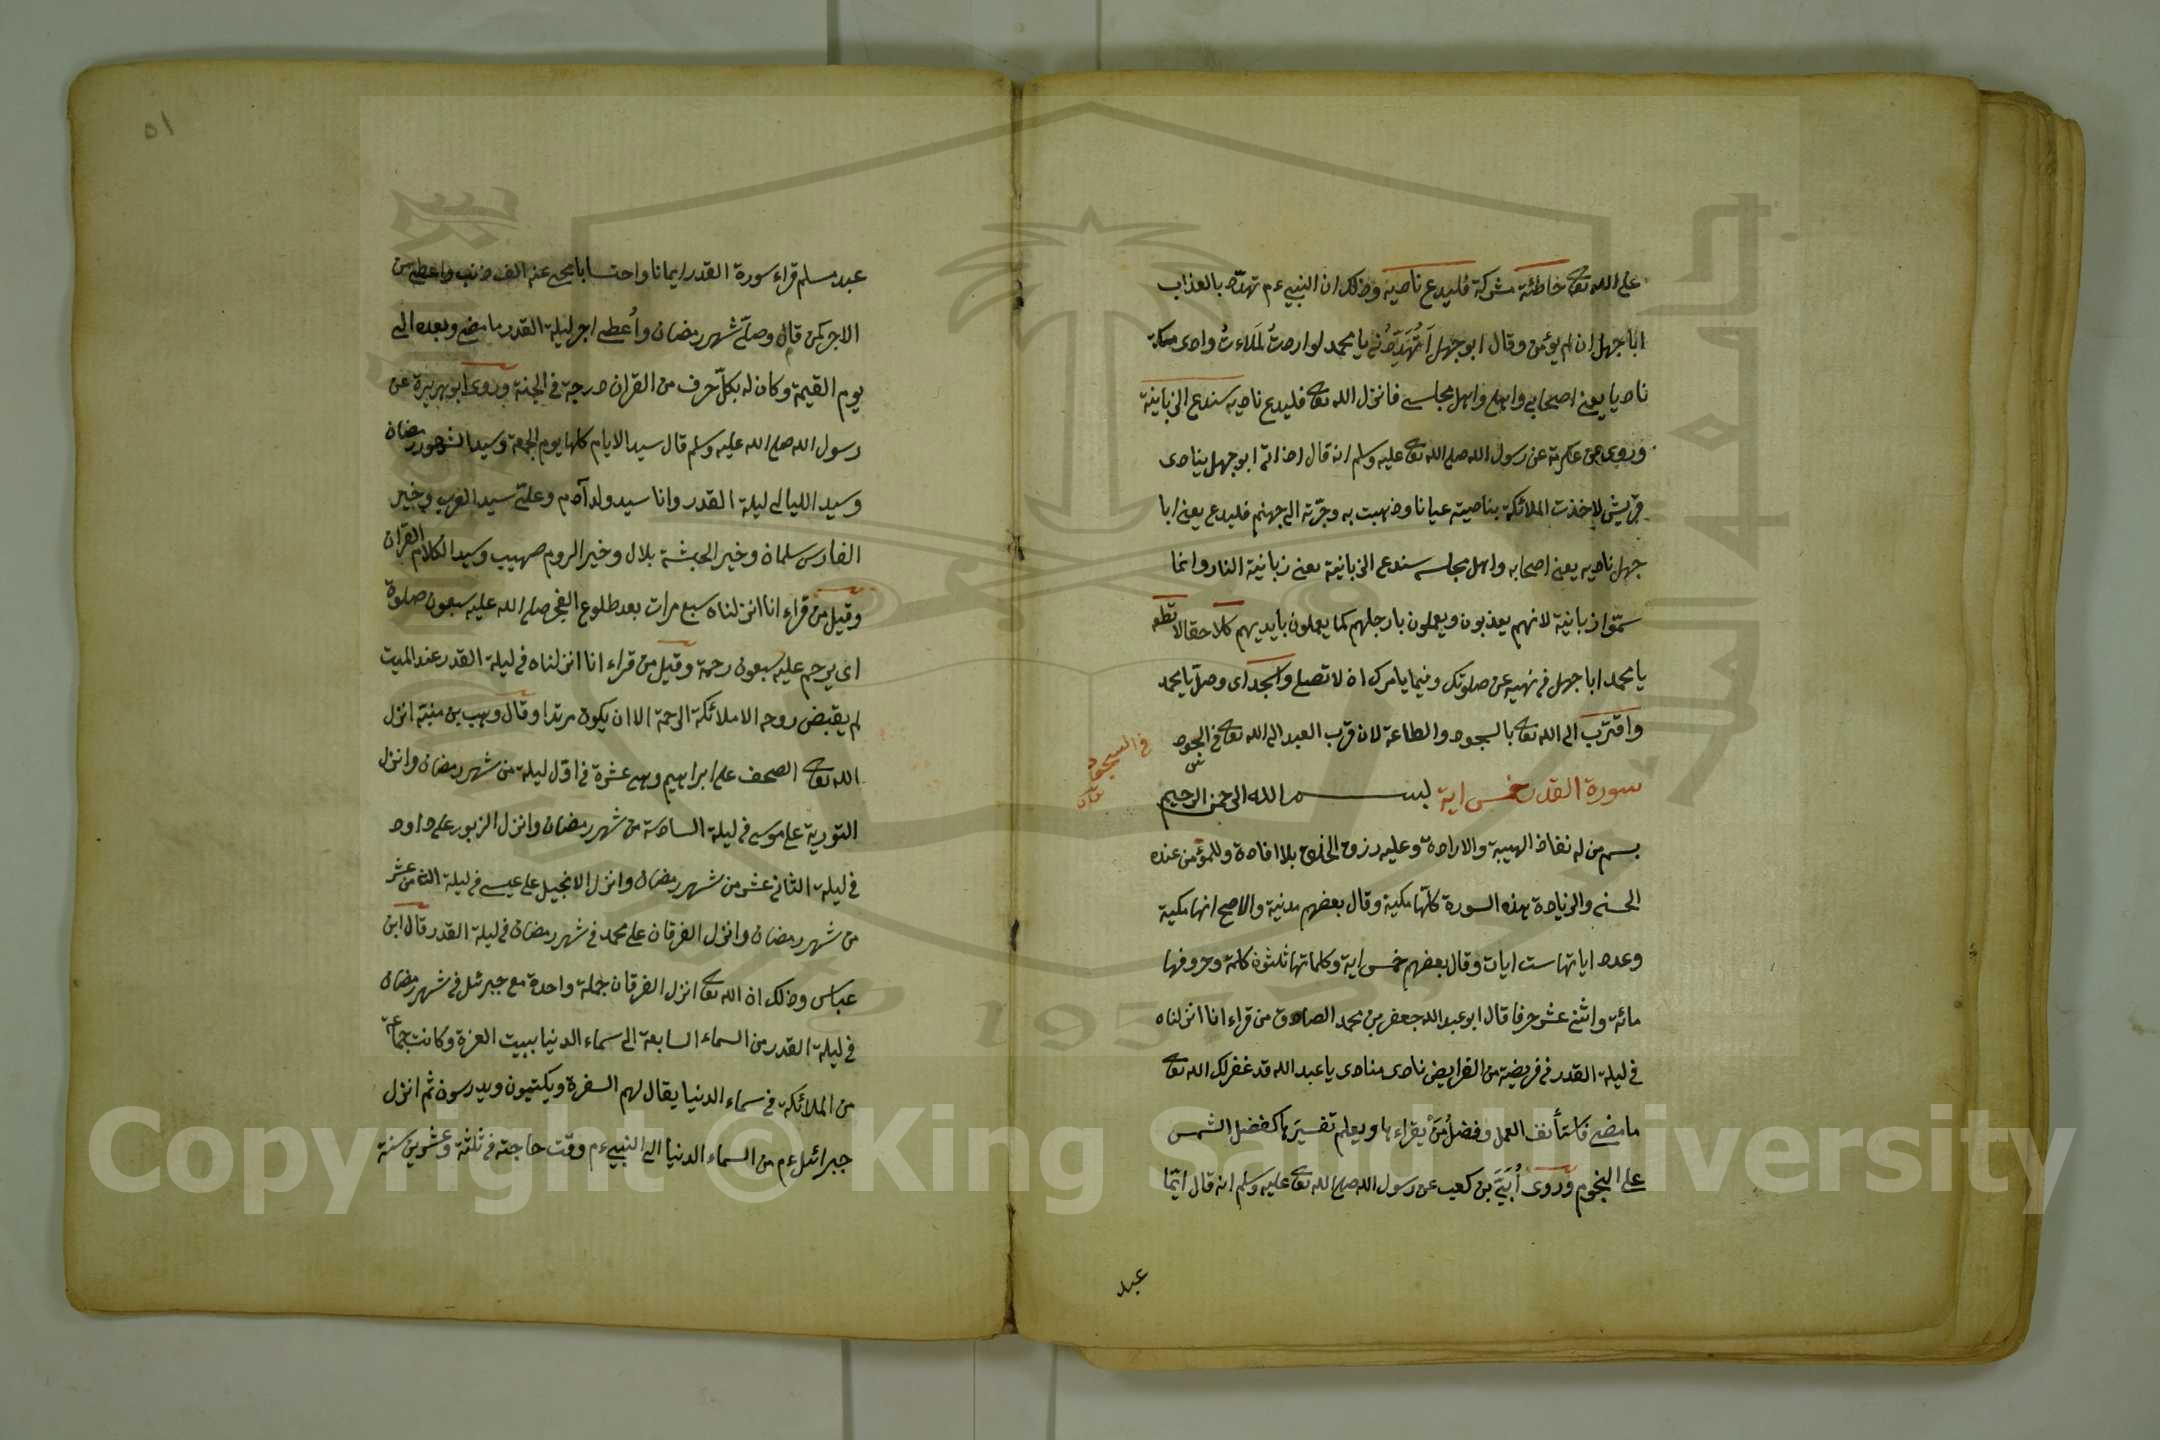 على الله تعالى خاطئة مشركة فليدع ناديه وذلك ان النبي عم تهدّد بالعذاب
ابا جهل ان لم يؤمن وقال ابو جهل اَتُهَدِّدُني يا محمد لو اردتُ لَملاءتُ وادى مكة
ناديا يعنى اصحابى واهلى واهل مجلسى فانزل الله تعالى فليدع ناديه سندع الزبانية
وروى عن عكرمة عن رسول الله صلى الله تعالى عليه وسلم انه قال اذا اتى ابو جهل ينادى
قريش لاخذت الملائكة بناصيته عيانا وذهبت به وجرّته الى جهنم فليدع يعنى ابا
جهل ناديه يعنى اصحابه واهل مجلسه سندع الزبانية يعنى زبانية النار وانما
سمّوا زبانية لانهم يعذبون ويعملون بارجلهم كما يعملون بايديهم كلا حقا لا تطعه
يا محمد ابا جهل فى نهيه عن صلوتك وفيما يامرك ان لا تصلى واسجد اى وصل يا محمد
واقترب الى الله تعالى بالسجود والطاعة لان قرب العبد الى الله تعالى فى السجود
فى السجود
سورة القدر خمس اية بسم الله الرحمن الرحيم
بسم من له نفاذ الهيبة والارادة وعليه رزق الخلق بلا افادة وللمؤمن عنده
الحسنى والزيادة هذه السورة كلّها مكية وقال بعضهم مدنية والاصح انها مكية
وعدد اياتها ست ايات وقال بعضهم خمس اية وكلماتها ثلثون كلمة وحروفها
مائة واثنى عشر حرفا قال ابو عبد الله جعفر بن محمد الصادق من قراء انا انزلناه
فى ليلة القدر فى فريضة من الفرايض نادى منادى يا عبد الله قد غفر لك الله تعالى
ما مضى فاستأنف العمل وفضلُ مَنْ يقراءها ويعلم تفسيرَها كفضل الشمس
على النجوم وروى اُبَيّ بن كعب عن رسول الله صلى الله تعالى عليه وسلم انه قال ايّما
عبد
٥١
عبد مسلم قراء سورة القدر ايمانا واحتسابا محى عنه الف ذنب واعطى من
الاجر كمن قال وصلى شهر رمضان واُعطى اجر ليلة القدر ما مضى وبعده الى
يوم القيمة وكان له بكلّ حرف من القران درجة فى الجنة وروى ابو هريرة عن
رسول الله صلى الله عليه وسلم قال سيد الايام كلها يوم الجمعة وسيد الشهور رمضان
وسيد الليالى ليلة القدر وانا سيد ولد آدم وعلىّ سيد العرب وخير
الفارس سلمان وخير الحبشة بلال وخير الروم صهيب وسيد الكلام القران
وقيل من قراء انا انزلناه سبع مرات بعد طلوع الفجر صلى الله عليه سبعون صلوة
اى يرحم عليه سبعون رحمة وقيل من قراء انا انزلناه فى ليلة القدر عند الميت
لم يقبض روحه الا ملائكة الرحمة الا ان يكون مرتدا وقال وهب بن منبّه انزل
الله تعالى الصحف على ابراهيم وهى عشرة فى اوّل ليلة من شهر رمضان وانزل
التورية على موسى فى ليلة السادسة من شهر رمضان وانزل الزبور على داود
فى ليلة الثانى عشر من شهر رمضان وانزل الانجيل على عيسى فى ليلة الثامن عشر
من شهر رمضان وانزل الفرقان على محمد فى شهر رمضان فى ليلة القدر قال ابن
عباس وذلك ان الله تعالى انزل الفرقان جملة واحدة مع جبرئل فى شهر رمضان
فى ليلة القدر من السماء السابعة الى سماء الدنيا ببيت العزة وكانت جماعة
من الملائكة فى سماء الدنيا يقال لهم السفرة ويكتبون ويدرسون ثم انزل
جبرائل عم من السماء الدنيا الى النبى عم وقت حاجته فى ثلثة وعشرين سنة
Copyright © King Saud University
1957